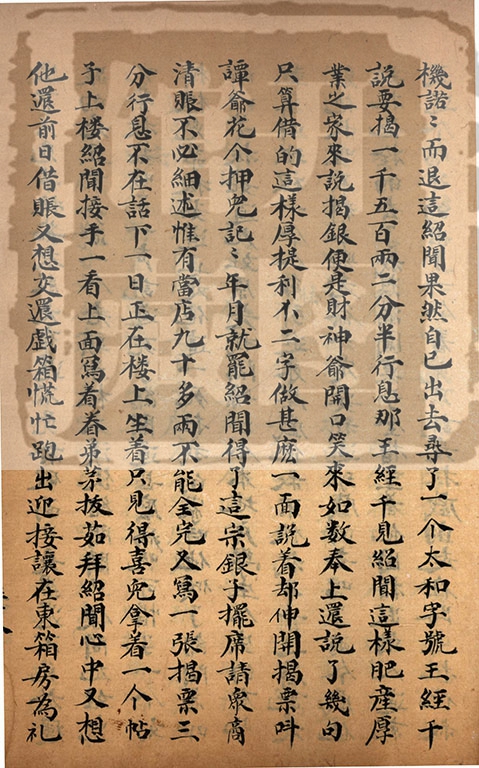 機諾〻而退這紹聞果然自己出去尋了一个太和字號王經千
說要揭一千五百兩二分半行息那王經千見紹聞這樣肥産厚
業之家來說揭銀便是財神爺開口笑來如数奉上還說了幾句
只算借的這樣厚提利不二字做甚麽一面說着却伸開揭票呌
譚爺花个押児記〻年月就罷紹聞得了這宗銀子擺席請衆商
清賬不必細述惟有當店九十多兩不能全完又寫一張揭票三
分行息不在話下一日正在楼上坐着只見得喜児拿着一个帖
子上楼紹聞接手一看上面寫着眷弟茅拔茹拜紹聞心中又想
他還前日借賬又想交還戲箱慌忙跑出迎接讓在東箱房為礼